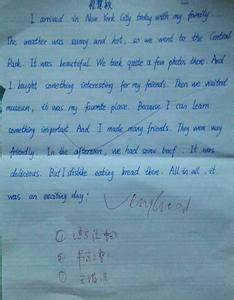 I arrived in New York City today with my family.
The weather was sunny and hot, so we went to the Central
Park. It was beautiful. We took quite a few photos there. And
I bought something interesting for my friends. Then we visited
museum, it was my favorite place. Because I can learn
something important. And I made many friends. They were very
friendly. In the afternoon, we had some beef. It was
delicious. But I dislike eating bread there. All in all, it
was an exciting day!
Very good
①
②
③